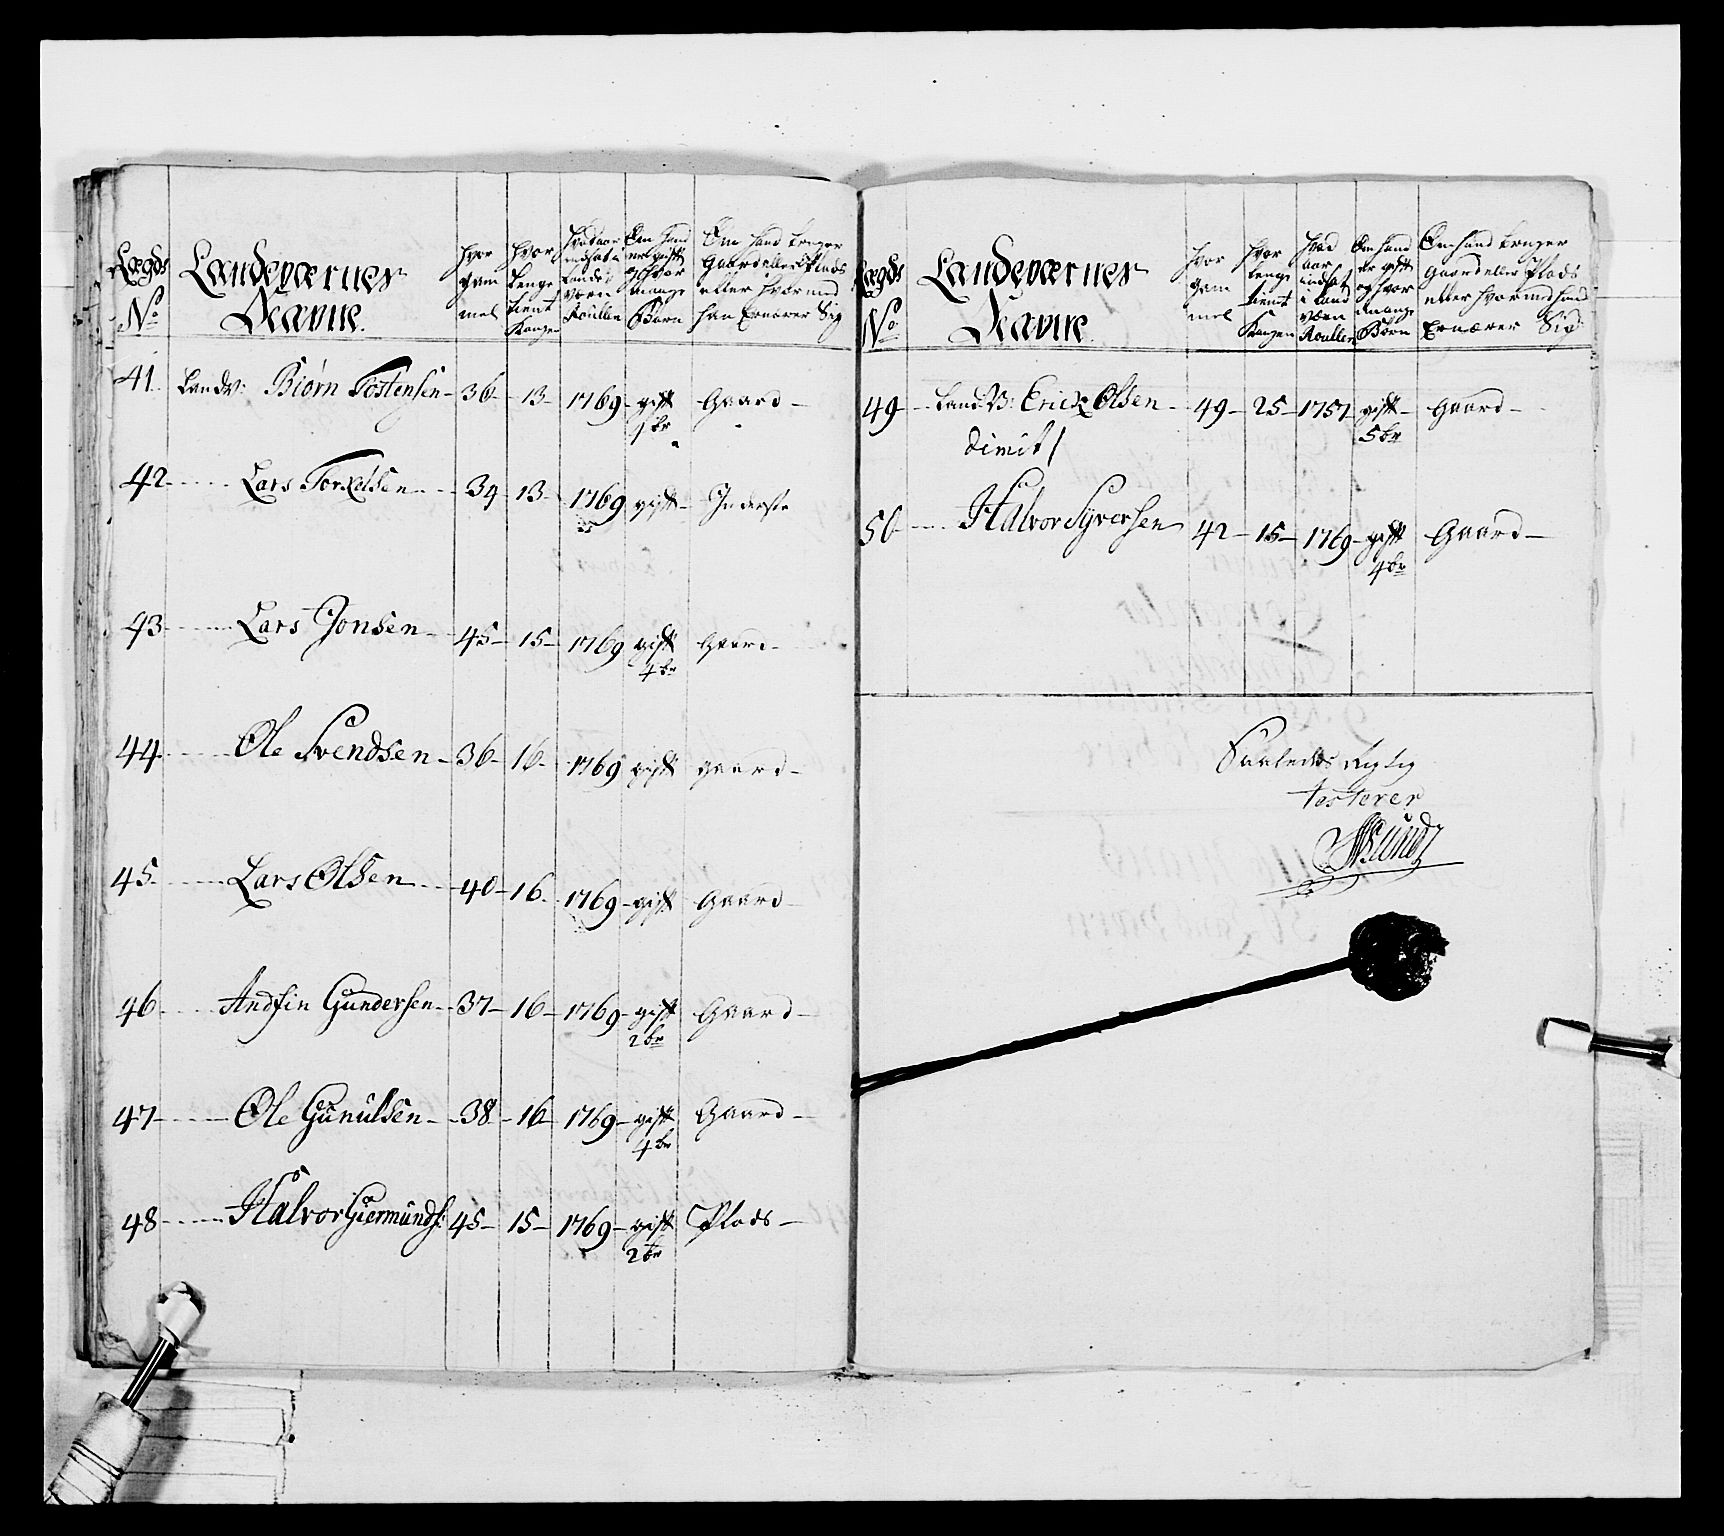 Lægds No
Landeværnes Navne.
hvor gam mel
hvor lenge tient Kongen
hvad aar indsat i Lande værn Roullen
Om hand er gift og hvor mange Børn
Om hand bruger Gaard eller Plads eller hvormed han Ernærer Sig
41. Landv: Biørn Tostensen - 36 - 13 - 1769 - gift 1 br - Gaard -
42 Lars Torkelsen - 34 - 13 - 1769 gift - Inderste
43 Lars Jonsen - 45 - 15 - 1769 gift 4 br Gaard -
44 Ole Svendsen - 36 - 16 - 1769 gift gaard -
45 Lars Olsen - 40 - 16 - 1769 - gift Gaard
46 Andfin Gundersen - 37 - 16 - 1769 - gift 2 br Gaard -
47 Ole Gunulsen - 38 - 16 - 1769 - gift 4 br Gaard -
48 Halvor Giermunds: 45 - 15 - 1769 - gift 2 br Plads -
Lægds No
Landeværnes Navne.
hvor gam mel
hvor lenge tient Kongen
hvad aar indsat i Land værn Roullen
Om hand er gift og hvor mange Børn
Om hand bruger Gaard eller Plads eller hvormed hand Ernærer Sig:
49 Land V: Erick Olsen - 49 - 25 - 1757 gift - 5 br Gaard -
dimit/
50 Halvor Syversen 42 - 15 - 1769 - gift 4 br Gaard -
Saaledes Rigtig
testerer